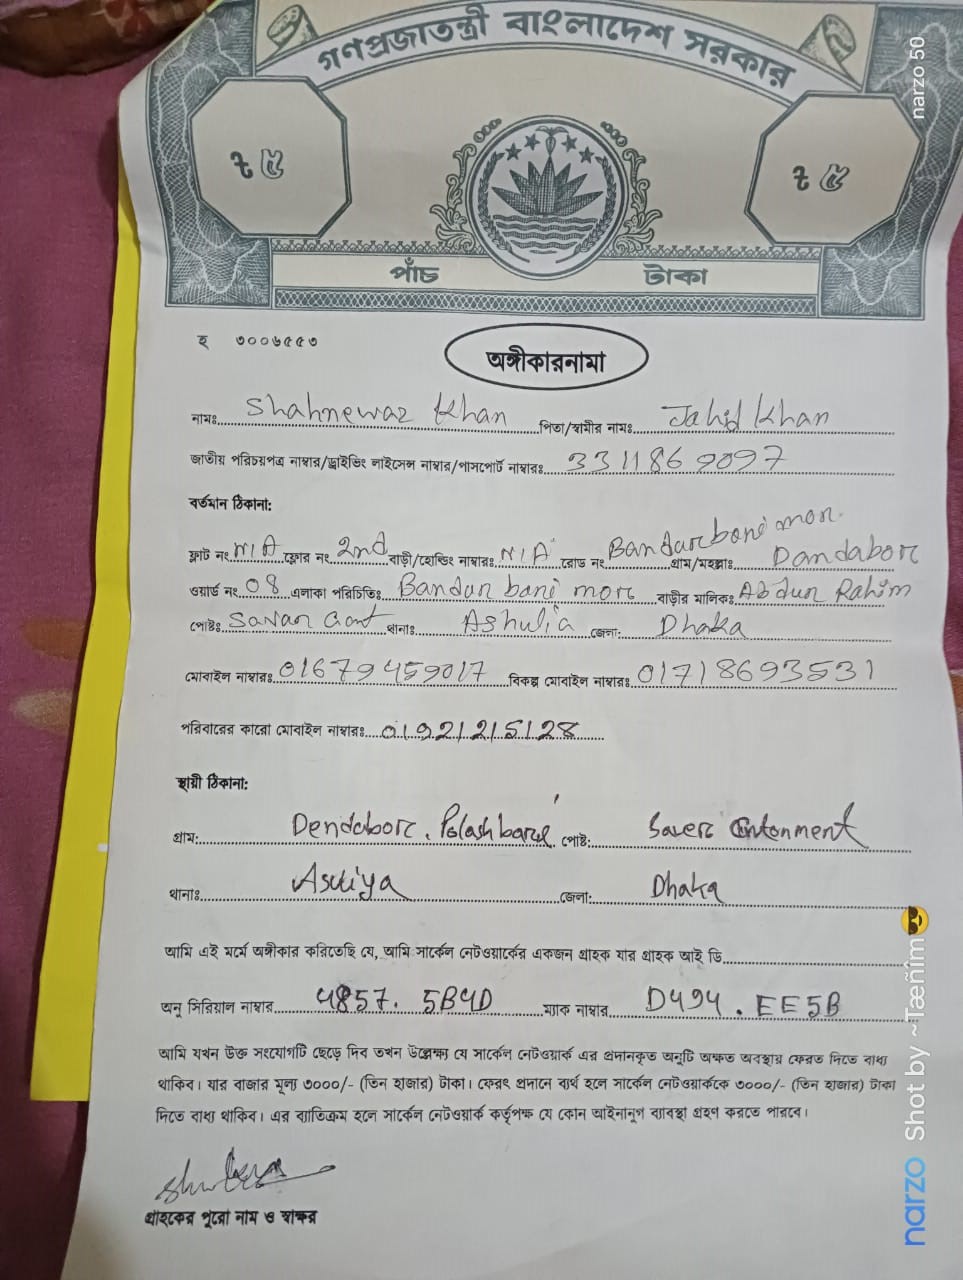 গণপ্রজাতন্ত্রী বাংলাদেশ সরকার
৳ ৫ ৳ ৫
পাঁচ টাকা
হ ৩০০৬৫৫৩
অঙ্গীকারনামা
নামঃ Shahnewaz Khan পিতা/স্বামীর নামঃ Jahid Khan
জাতীয় পরিচয়পত্র নাম্বার/ড্রাইভিং লাইসেন্স নাম্বার/পাসপোর্ট নাম্বারঃ 3311869097
বর্তমান ঠিকানা:
ফ্লাট নং N/A ফ্লোর নং 2nd বাড়ী/হোল্ডিং নাম্বারঃ N/A রোড নং Bandurbone mor. গ্রাম/মহল্লাঃ Dandabor
ওয়ার্ড নং 08 এলাকা পরিচিতিঃ Bandur bane mor বাড়ীর মালিকঃ Abdur Rahim
পোষ্টঃ Savar Cant থানাঃ Ashulia জেলা: Dhaka
মোবাইল নাম্বারঃ 01679459017 বিকল্প মোবাইল নাম্বারঃ 01718693531
পরিবারের কারো মোবাইল নাম্বারঃ 01921215128
স্থায়ী ঠিকানা:
গ্রাম: Dendabor, Polashbare পোষ্ট: Saver Contonment
থানাঃ জেলা: Dhaka
আমি এই মর্মে অঙ্গীকার করিতেছি যে, আমি সার্কেল নেটওয়ার্কের একজন গ্রাহক যার গ্রাহক আই ডি
অনু সিরিয়াল নাম্বার 4857. 5B4D ম্যাক নাম্বার D494. EE5B
আমি যখন উক্ত সংযোগটি ছেড়ে দিব তখন উল্লেক্ষ্য যে সার্কেল নেটওয়ার্ক এর প্রদানকৃত অনুটি অক্ষত অবস্থায় ফেরত দিতে বাধ্য
থাকিব। যার বাজার মূল্য ৩০০০/- (তিন হাজার) টাকা। ফেরৎ প্রদানে ব্যর্থ হলে সার্কেল নেটওয়ার্ককে ৩০০০/- (তিন হাজার) টাকা
দিতে বাধ্য থাকিব। এর ব্যতিক্রম হলে সার্কেল নেটওয়ার্ক কর্তৃপক্ষ যে কোন আইনানুগ ব্যাবস্থা গ্রহণ করতে পারবে।
গ্রাহকের পুরো নাম ও স্বাক্ষর
narzo 50
narzo Shot by ~Tæñîm😎